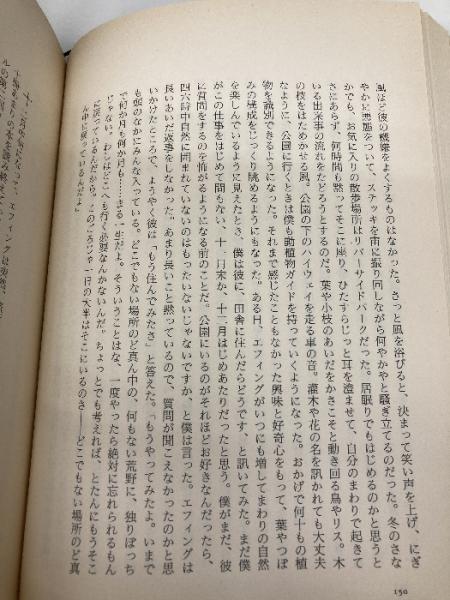 風ほど彼の機嫌をよくするものはなかった。さっと風を浴びると、決まって笑い声を上げ、にぎ
やかに悪態をついて、ステッキを宙に振り回しながら何やかやと騒ぎ立てるのだった。冬のさな
かでも、お気に入りの散歩場所はリバーサイドパークだった。居眠りでもはじめるのかと思うと
さにあらず、何時間も黙ってそこに座り、ひたすらじっと耳を澄ませて、自分のまわりで起きて
いる出来事の流れをたどろうとするのだ。葉や小枝のあいだをかさこそと動き回る鳥やリス。木
の枝をはためかせる風。公園の下のハイウェイを走る車の音。灌木や花の名を訊かれても大丈夫
なように、公園に行くときは僕も動植物ガイドを持っていくようになった。おかげで何十もの植
物を識別できるようになった。それまで感じたこともなかった興味と好奇心をもって、葉やつぼ
みの構成をじっくり眺めるようにもなった。あるH、エフィングがいつにも増してまわりの自然
を楽しんでいるように見えたとき、僕は彼に、田舎に住んだらどうです、と訊いてみた。まだ僕
がこの仕事をはじめて間もない、十一月末か、十二月はじめあたりだったと思う。僕がまだ、彼
に質問をするのを怖がるようになる前のことだ。公園にいるのがそれほどお好きなんだったら、
四六時中自然に囲まれていないのはもったいないじゃないですか、と僕は言った。エフィングは
長いあいだ返事をしなかった。あまり長いこと黙っているので、質問が聞こえなかったのかと思
いかけたところで、ようやく彼は「もう住んでみたさ」と答えた。「もうやってみたよ。いまで
も頭のなかにみんな入っている。どこでもない場所のど真ん中の、何もない荒野に、独りぼっち
で何か月も何か月も……まる一生だよ。そういうことはな、一度やったら絶対に忘れられるもん
じゃない。わしはどこへも行く必要なんかないんだ。ちょっとでも考えれば、とたんにもうそこ
に戻っているんだから。このごろじゃ一日の大半はそこにいるのさ――どこでもない場所のど真
ん中に戻っているんだよ」
150